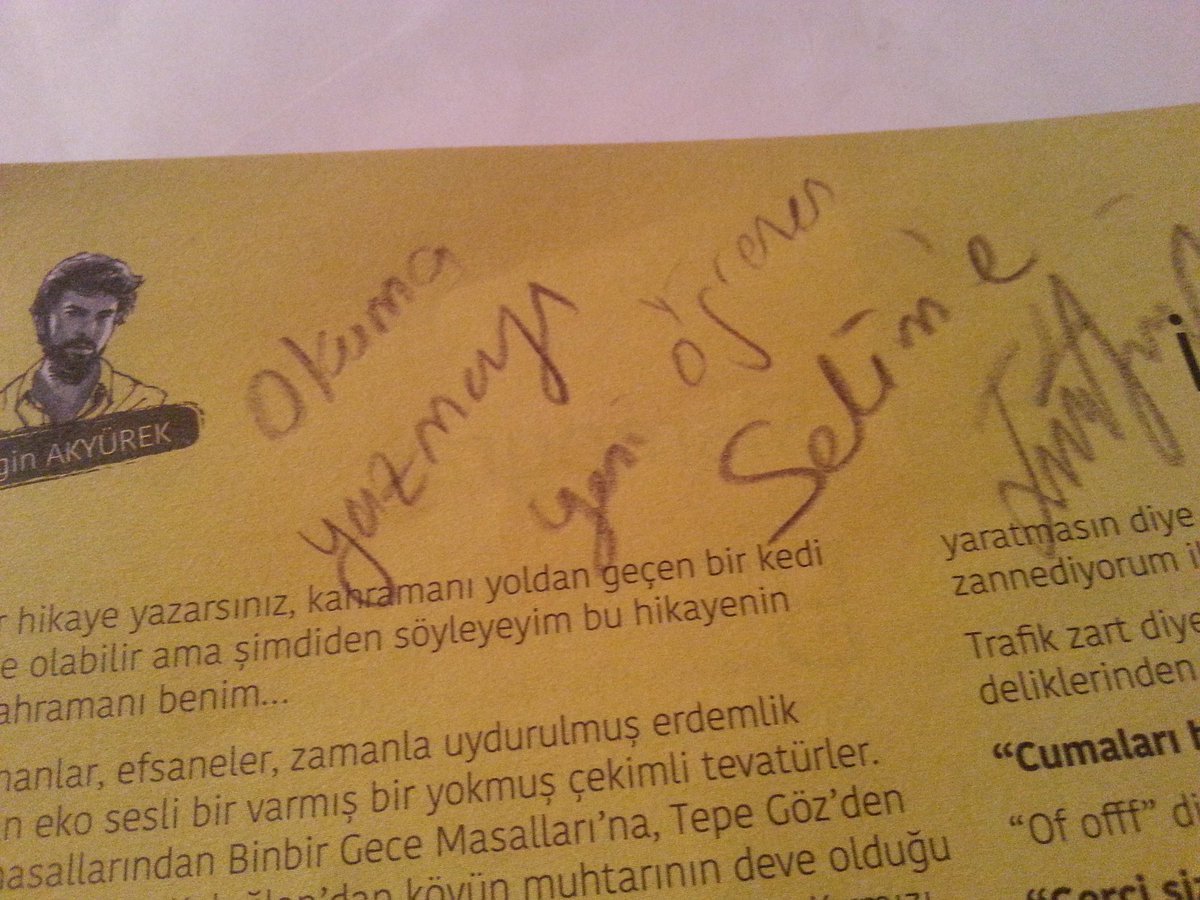 gin AKYÜREK
Okuma
yazmayı
yeni öğrenen
Selim'e
İ
r hikaye yazarsınız, kahramanı yoldan geçen bir kedi
e olabilir ama şimdiden söyleyeyim bu hikayenin
ahramanı benim...
manlar, efsaneler, zamanla uydurulmuş erdemlik
n eko sesli bir varmış bir yokmuş çekimli tevatürler.
masallarından Binbir Gece Masalları'na, Tepe Göz'den
dan köyün muhtarının deve olduğu
yaratmasın diye
zannediyorum il
Trafik zart diye
deliklerinden
“Cumaları
“Of offf” di